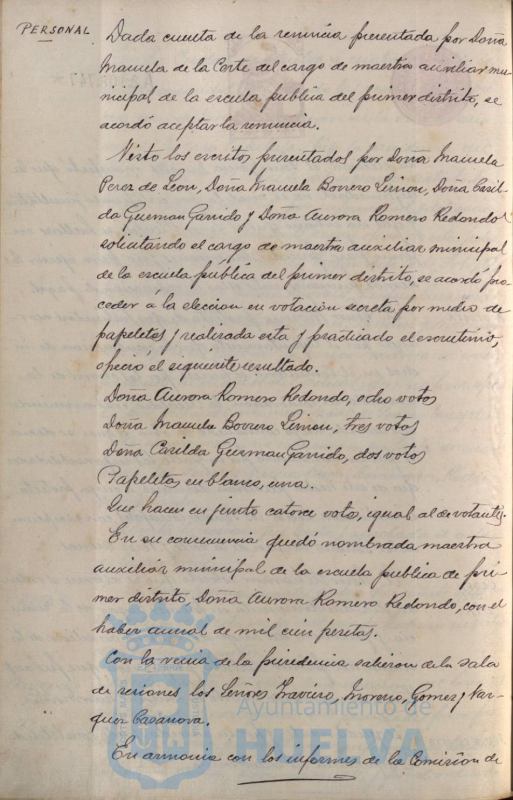 PERSONAL
Dada cuenta de la renuncia presentada por Doña
Manuela de la Corte del cargo de maestra auxiliar mu-
nicipal de la escuela publica del primer distrito, se
acordó aceptar la renuncia.
Visto los escritos presentados por Doña Manuela
Perez de Leon, Doña Manuela Borrero Limon, Doña Casil-
da Guzman Garrido y Doña Aurora Romero Redondo
solicitando el cargo de maestra auxiliar municipal
de la escuela pública del primer distrito, se acordó pro
ceder á la eleccion en votación secreta por medio de
papeletas y realizada esta y practicado el escrutinio,
ofreció el siguiente resultado.
Doña Aurora Romero Redondo, ocho votos
Doña Manuela Borrero Limon, tres votos
Doña Casilda Guzman Garrido, dos votos
Papeletas en blanco, una.
Que hacen en junto catorce votos, igual al de votantes.
En su consecuencia quedó nombrada maestra
auxiliar municipal de la escuela publica de pri
mer distrito, Doña Aurora Romero Redondo, con el
haber anual de mil cien pesetas.
Con la venia de la presidencia salieron de la sala
de sesiones los Señores Moreno, Gomez y Vaz-
quez Casanova.
En armonia con los informes de la Comision de
Ayuntamiento de
HUELVA